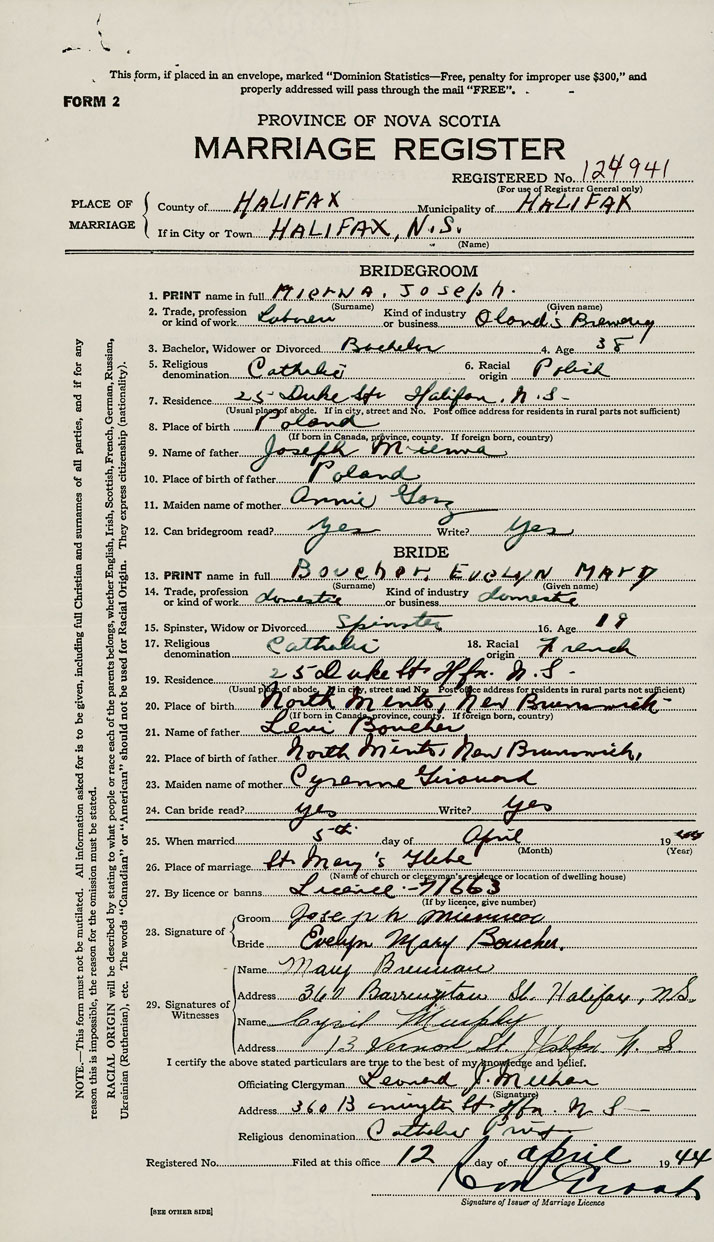 This form, if placed in an envelope, marked "Dominion Statistics—Free, penalty for improper use $300," and
properly addressed will pass through the mail "FREE".
FORM 2
PROVINCE OF NOVA SCOTIA
MARRIAGE REGISTER
REGISTERED No. 124941
(For use of Registrar General only)
PLACE OF MARRIAGE
County of HALIFAX Municipality of HALIFAX
If in City or Town HALIFAX, N.S.
(Name)
BRIDEGROOM
1. PRINT name in full MIERNA, JOSEPH.
(Surname) (Given name)
2. Trade, profession or kind of work Laborer Kind of industry or business Oland's Brewery
3. Bachelor, Widower or Divorced Bachelor 4. Age 38
5. Religious denomination Catholic 6. Racial origin Polish
7. Residence 25 Duke St. Halifax, N.S.
(Usual place of abode. If in city, street and No. Post office address for residents in rural parts not sufficient)
8. Place of birth Poland
(If born in Canada, province, county. If foreign born, country)
9. Name of father Joseph Mierna
10. Place of birth of father Poland
11. Maiden name of mother Annie
12. Can bridegroom read? yes Write? yes
BRIDE
13. PRINT name in full BOUCHER, EVELYN MARY
(Surname) (Given name)
14. Trade, profession or kind of work domestic Kind of industry or business domestic
15. Spinster, Widow or Divorced Spinster 16. Age 19
17. Religious denomination Catholic 18. Racial origin French
19. Residence 25 Duke St Hfx. N.S.
(Usual place of abode, If in city, street and No. Post office address for residents in rural parts not sufficient)
20. Place of birth North Minto, New Brunswick
(If born in Canada, province, county. If foreign born, country)
21. Name of father Levi Boucher
22. Place of birth of father North Minto, New Brunswick,
23. Maiden name of mother Cyrenne Girouard
24. Can bride read? yes Write? yes
25. When married 5th day of April 19 44
(Month) (Year)
26. Place of marriage St. Mary's Glebe
(Name of church or clergyman's residence or location of dwelling house)
27. By licence or banns Licence - 71663
(If by licence, give number)
28. Signature of
Groom Joseph
Bride Evelyn Mary Boucher.
29. Signatures of Witnesses
Name Mary Brennan
Address 360 Barrington St. Halifax, N.S.
Name Cyril Murphy
Address 13 Vernon St. Halifax N. S.
I certify the above stated particulars are true to the best of my knowledge and belief.
Officiating Clergyman Leonard J. Meehan
(Signature)
Address 360 Barrington St Hfx. N. S
Religious denomination Catholic Priest
Registered No. Filed at this office 12 day of April 1944
Signature of Issuer of Marriage Licence
[SEE OTHER SIDE]
NOTE.—This form must not be mutilated. All information asked for is to be given, including full Christian and surnames of all parties, and if for any
reason this is impossible, the reason for the omission must be stated.
RACIAL ORIGIN will be described by stating to what people or race each of the parents belongs, whether English, Irish, Scottish, French, German, Russian,
Ukrainian (Ruthenian), etc. The words "Canadian" or "American" should not be used for Racial Origin. They express citizenship (nationality).